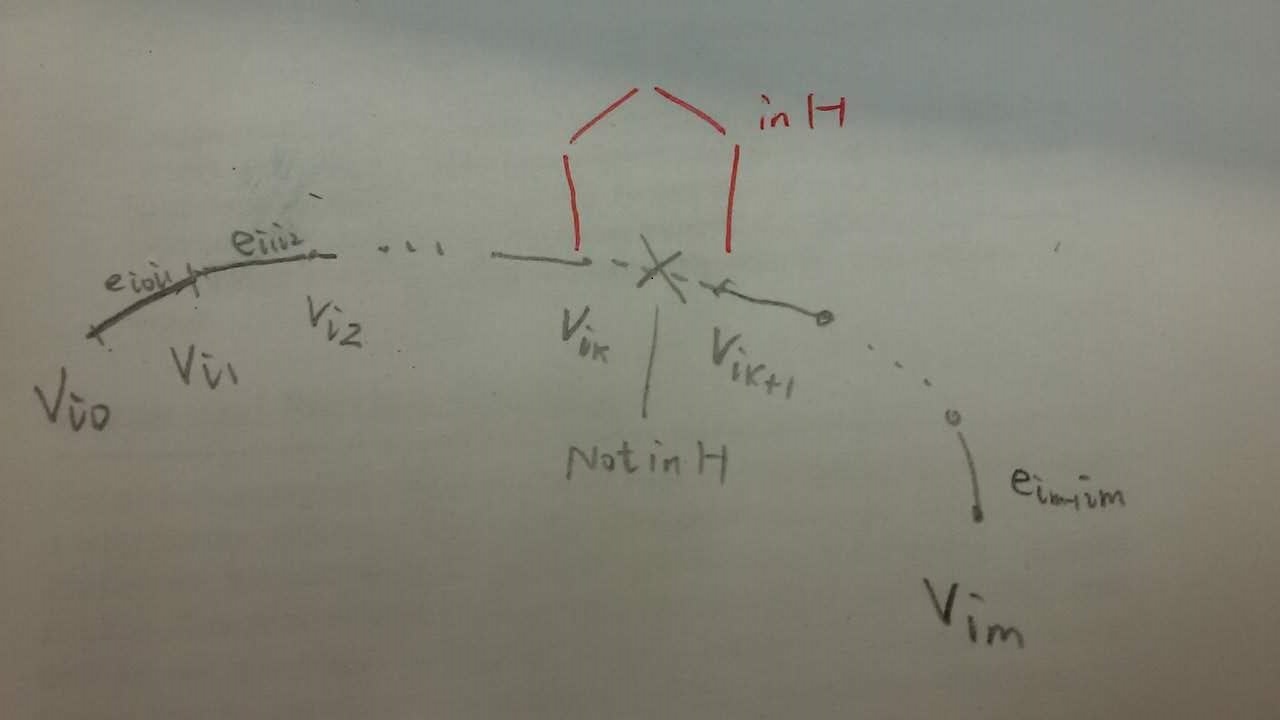 in H
ei0i1
ei1i2
Vi0
Vi1
Vi2
Vik
Vik+1
Not in H
eim-1im
Vim